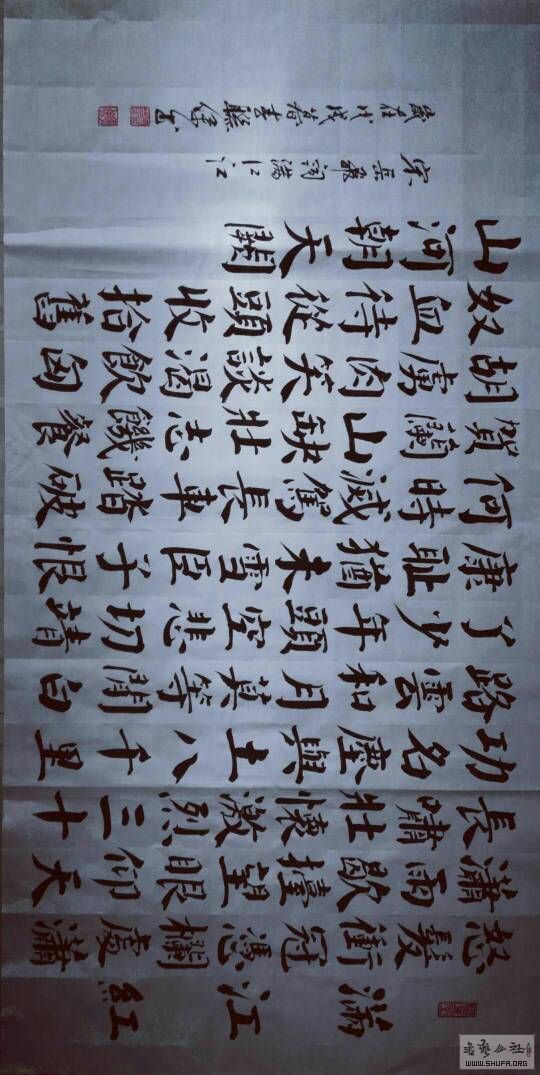 滿江紅
怒髮衝冠憑欄處瀟
瀟雨歇擡望眼仰天
長嘯壯懷激烈三十
功名塵與土八千里
路雲和月莫等閒白
了少年頭空悲切靖
康恥猶未雪臣子恨
何時滅駕長車踏破
賀蘭山缺壯志飢餐
胡虜肉笑談渴飲匈
奴血待從頭收拾舊
山河朝天闕
宋岳飛詞滿江紅
歲在戊戌暮春聯書
WWW.SHUFA.ORG